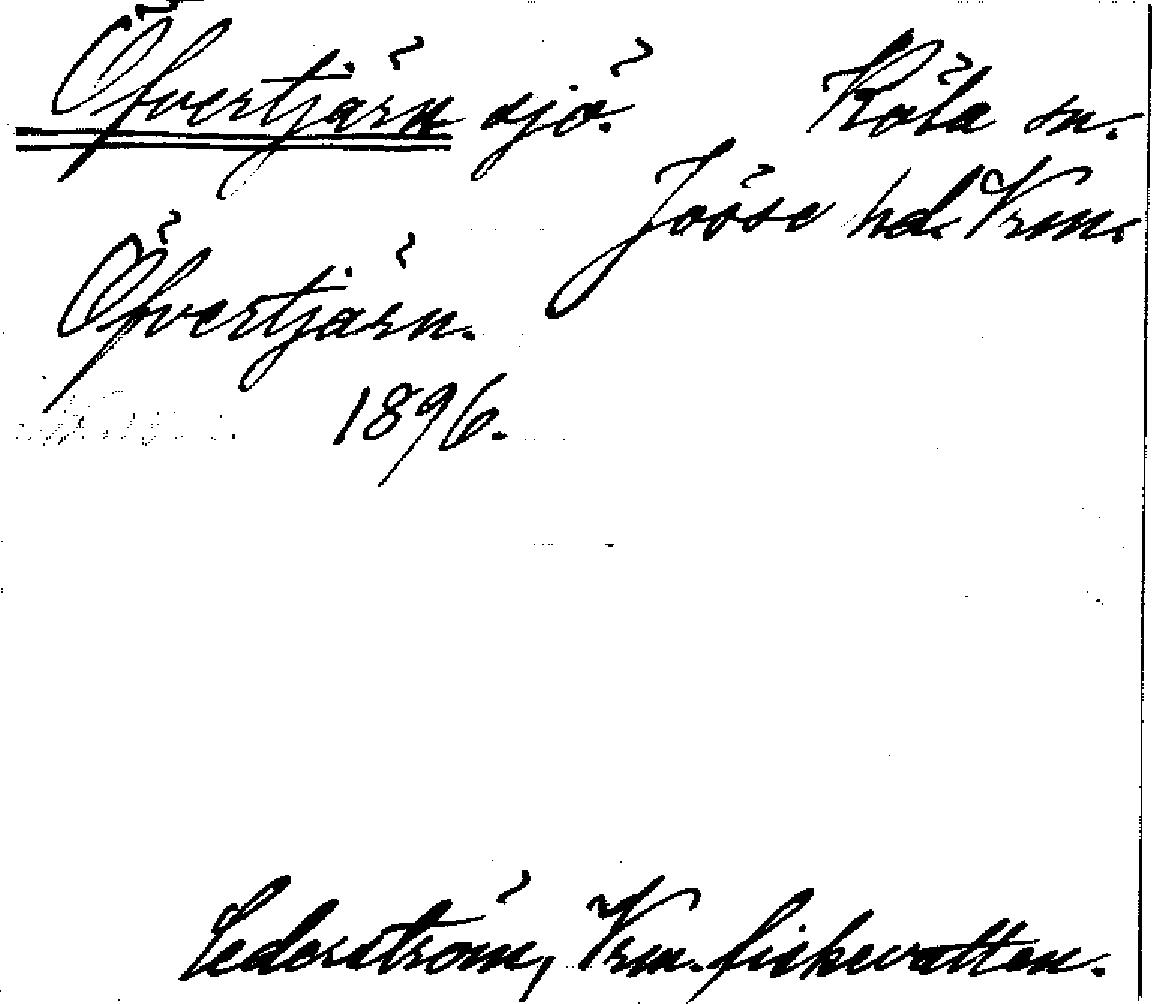 Öfvertjärn sjö. Köla sn.
Jösse hd. Vrm.
Öfvertjärn.
1896.
Cederström, Vrm. fiskevatten.